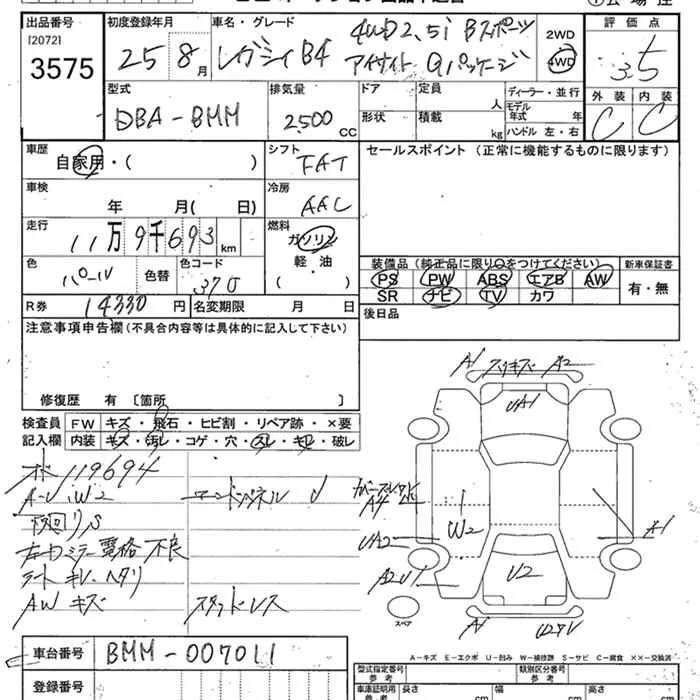 出品番号
[2072]
3575
初度登録年月
25 8月
車名・グレード
レガシィB4
4WD2.5i Bスポーツ
アイサイト Gパッケージ
2WD
4WD
評価点
3.5
外装 内装
C C
型式
DBA-BMM
排気量
2500 CC
ドア
形状
定員 人
積載 kg
ディーラー・並行
モデル年式 年
ハンドル 左・右
車歴
自家用・( )
シフト
FAT
セールスポイント (正常に機能するものに限ります)
車検
年 月( 日)
冷房
AAC
走行
11万9千693km
燃料
ガソリン
軽・油
( )
色
パール
色替
色コード
37J
装備品 (純正品に限り○をつけてください)
PS PW ABS エアB AW
SR ナビ TV カワ
新車保証書
有・無
R券 14330円
名変期限 月 日
後日品
注意事項申告欄(不具合内容等は具体的に記入して下さい)
修復歴 有 [箇所 ]
検査員
記入欄
FW キズ・飛石・ヒビ割・リペア跡・×要
内装 キズ・汚レ・コゲ・穴・スレ・キレ・破レ
119694
W2
下廻リS
ミラー電格不良
シート キレ、ヘタリ
AW キズ
スタッドレス
A1 スリキズ A2
UA1
A4
UA2
A2U1
W2
A1
U2
A1
スペア
A-キズ E-エクボ U-凹み W-補修跡 S-サビ C-腐食 XX-交換済
車台番号 BMM-007011
登録番号
型式指定番号
参考
類別区分番号
参考
車庫証明用
参考
長さ cm
幅 cm
高さ cm